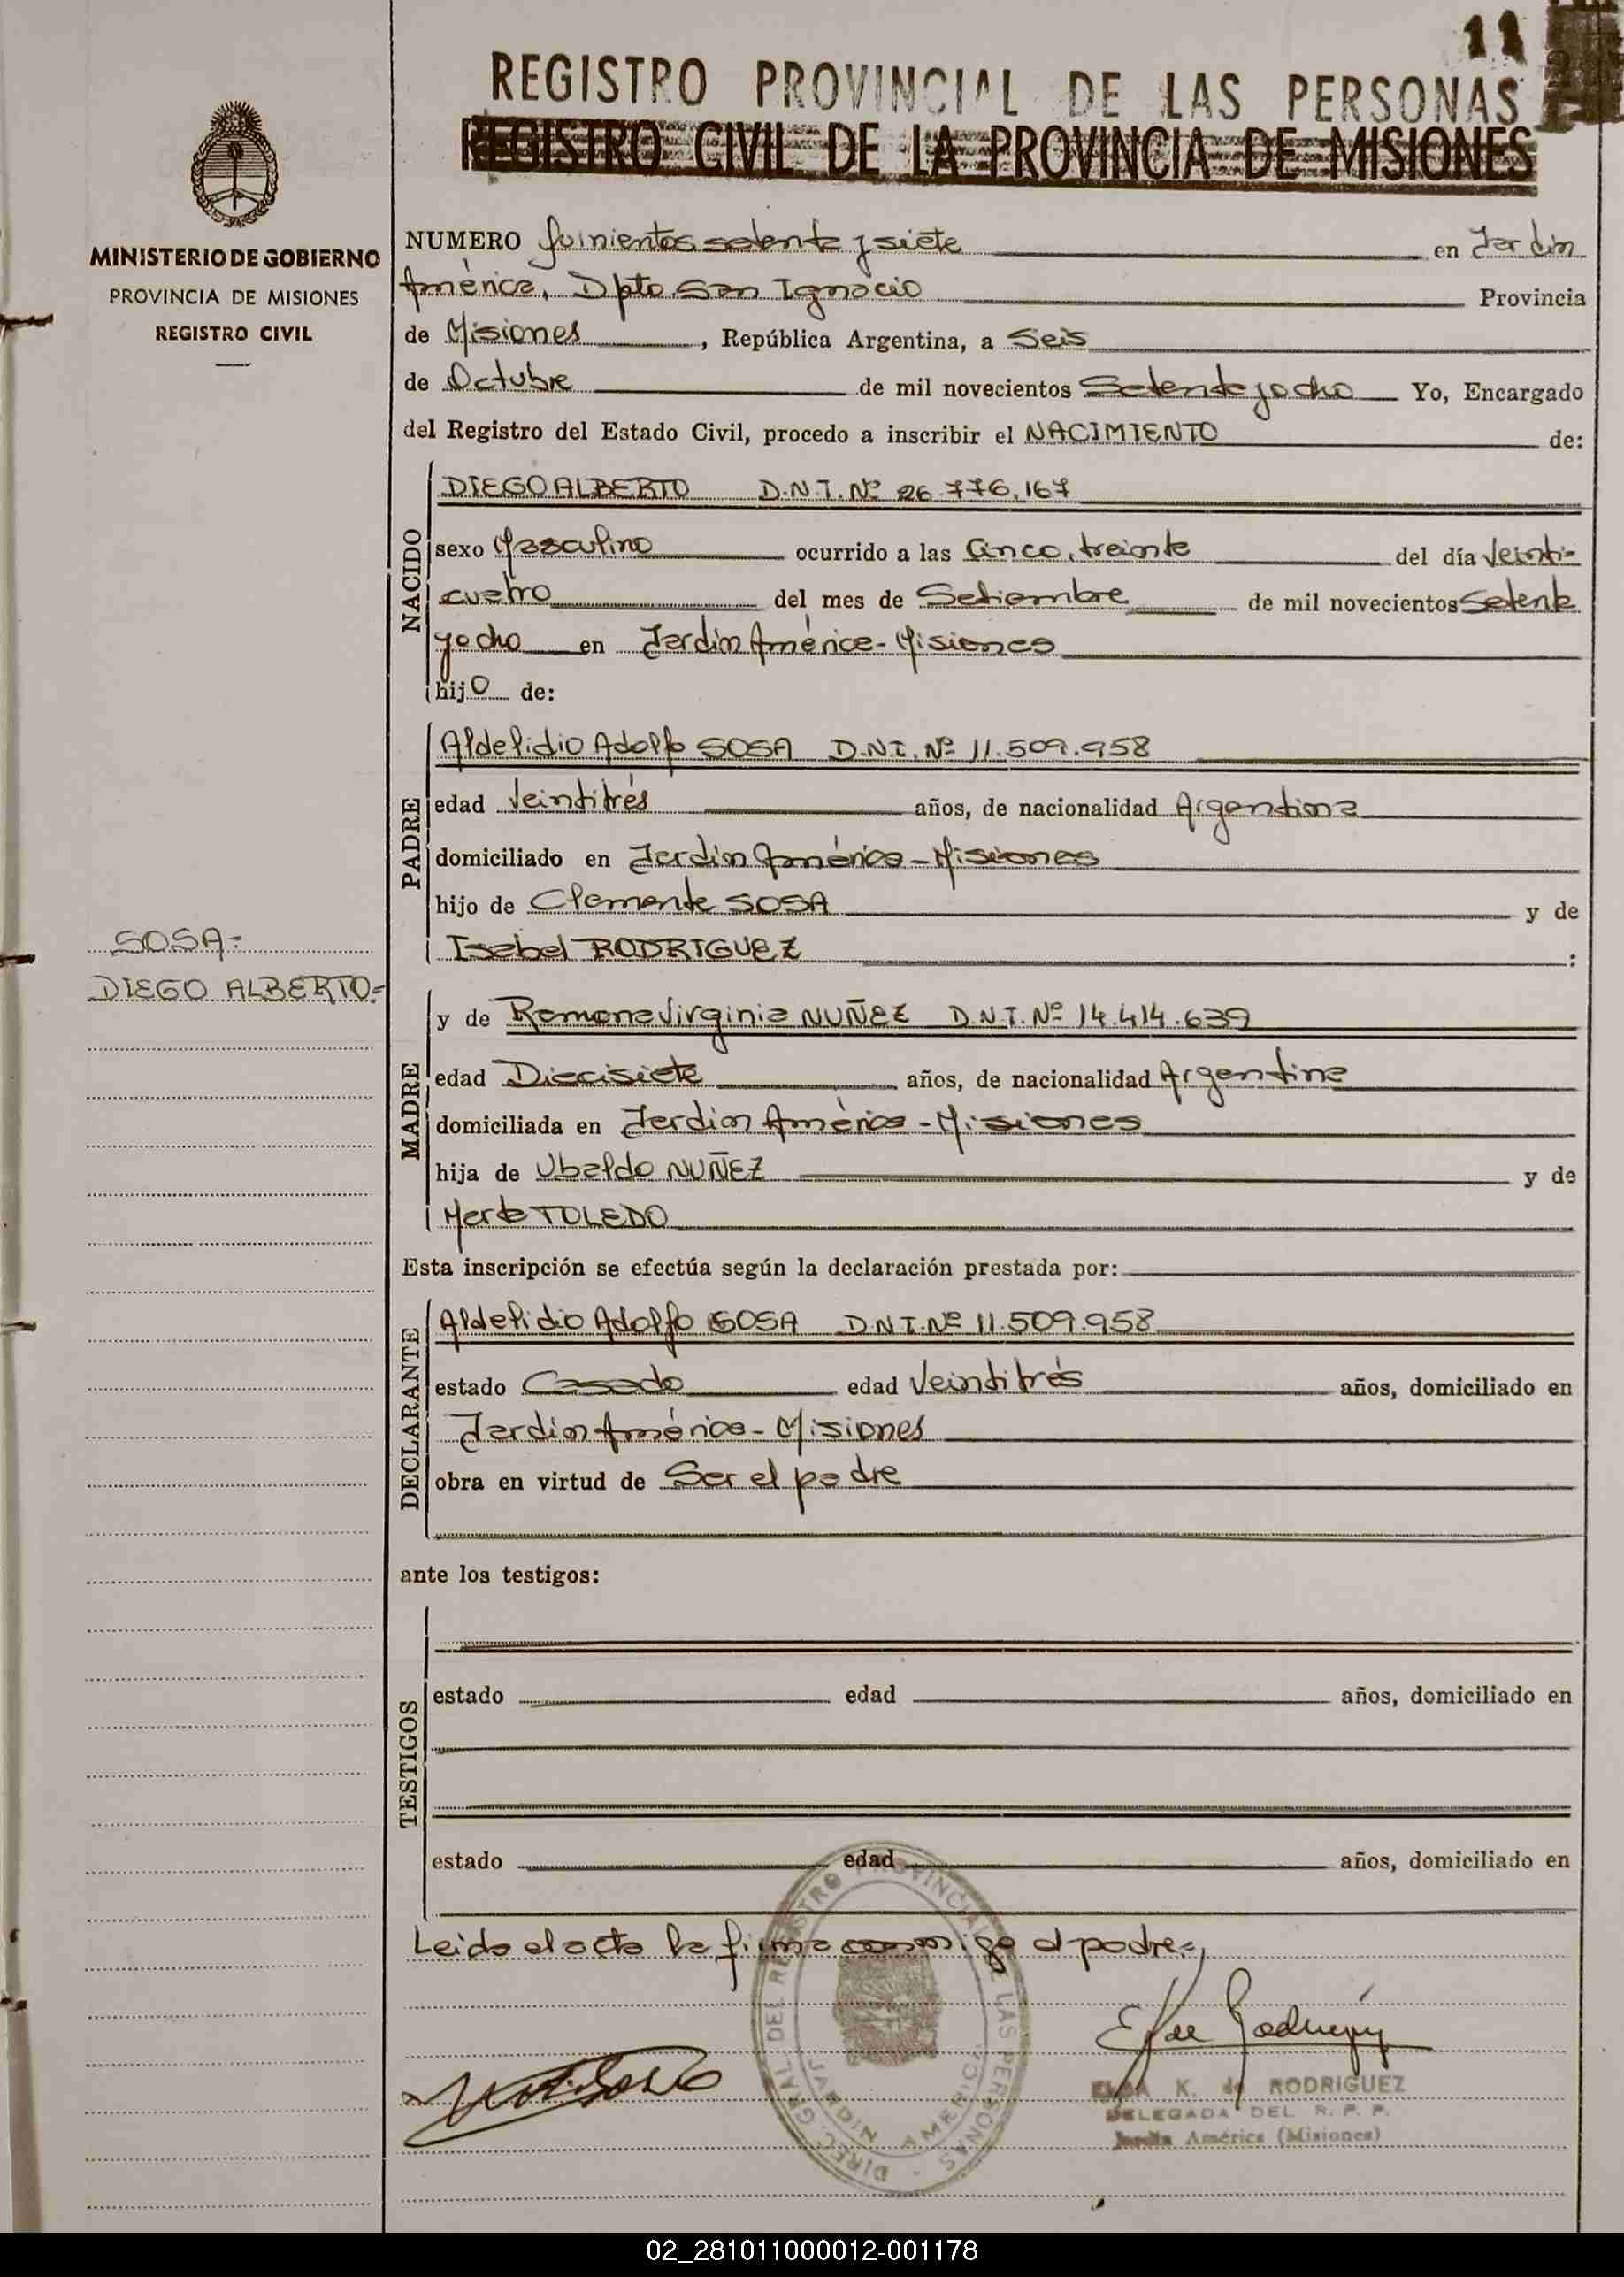 11
REGISTRO PROVINCIAL DE LAS PERSONAS
REGISTRO CIVIL DE LA PROVINCIA DE MISIONES
MINISTERIO DE GOBIERNO
PROVINCIA DE MISIONES
REGISTRO CIVIL
NUMERO Quinientos setenta y siete en Jardín
América, Dpto San Ignacio Provincia
de Misiones, República Argentina, a Seis
de Octubre de mil novecientos Setenta y ocho Yo, Encargado
del Registro del Estado Civil, procedo a inscribir el NACIMIENTO de:
NACIDO
DIEGO ALBERTO D.N.I. Nº 26.776.167
sexo Masculino ocurrido a las Cinco, treinta del día Veinti-
cuatro del mes de Setiembre de mil novecientos Setenta
y ocho en Jardín América - Misiones
hijo de:
PADRE
Aldelidio Adolfo SOSA D.N.I. Nº 11.509.958
edad Veintitrés años, de nacionalidad Argentina
domiciliado en Jardín América - Misiones
hijo de Clemente SOSA y de
Isabel RODRIGUEZ :
SOSA-
DIEGO ALBERTO-
MADRE
y de Ramona Virginia NUÑEZ D.N.I. Nº 14.414.639
edad Diecisiete años, de nacionalidad Argentina
domiciliada en Jardín América - Misiones
hija de Ubaldo NUÑEZ y de
Marta TOLEDO
Esta inscripción se efectúa según la declaración prestada por:
DECLARANTE
Aldelidio Adolfo SOSA D.N.I. Nº 11.509.958
estado Casado edad Veintitrés años, domiciliado en
Jardín América - Misiones
obra en virtud de Ser el padre
ante los testigos:
TESTIGOS
estado edad años, domiciliado en
estado edad años, domiciliado en
Leida el acta la firma conmigo el padre.-
DIREC. GRAL DEL REGISTRO PROVINCIAL DE LAS PERSONAS
JARDIN AMERICA
ELSA K. de RODRIGUEZ
DELEGADA DEL R. P. P.
Jardín América (Misiones)
02_281011000012-001178